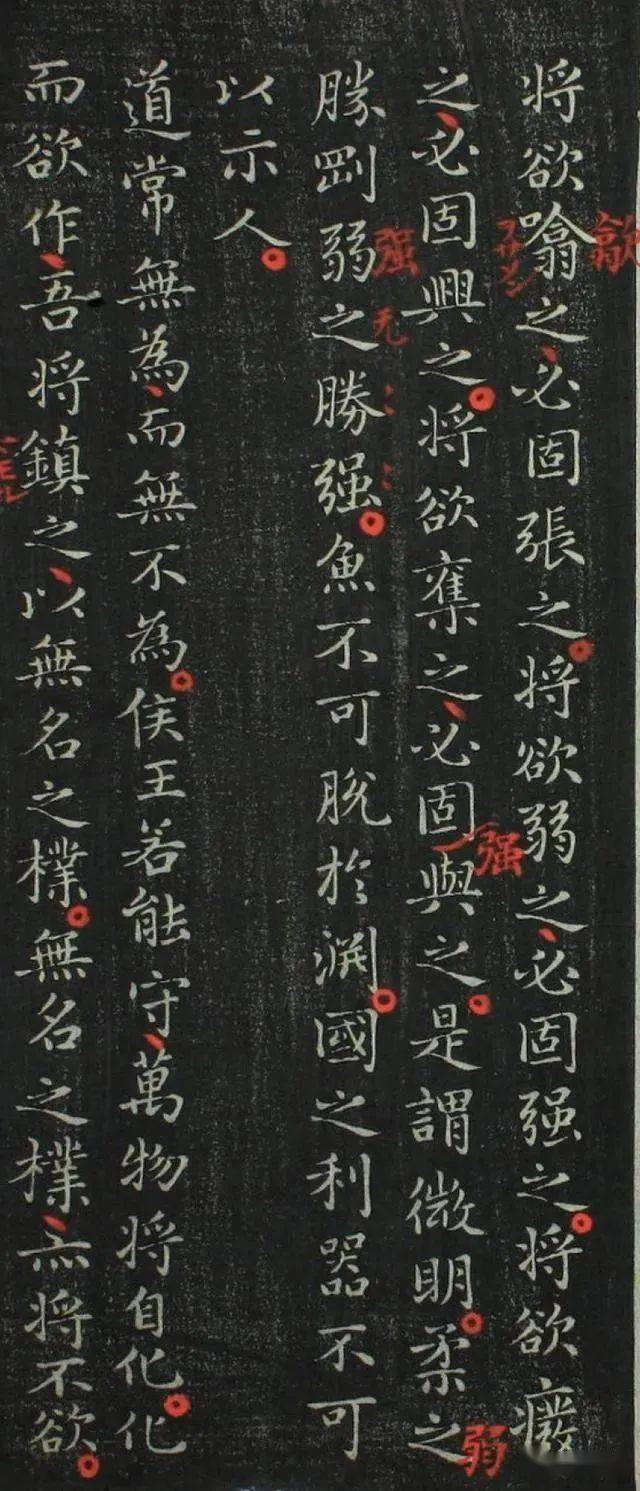 将欲噏之必固張之将欲弱之必固强之将欲癈
歙
之必固興之将欲之必固與之是謂微明柔之
强
弱
勝剛弱之勝强魚不可脫於渊國之利器不可
强 无
以示人
道常無為而無不為侯王若能守萬物将自化化
而欲作吾将鎮之以無名之樸無名之樸亦将不欲